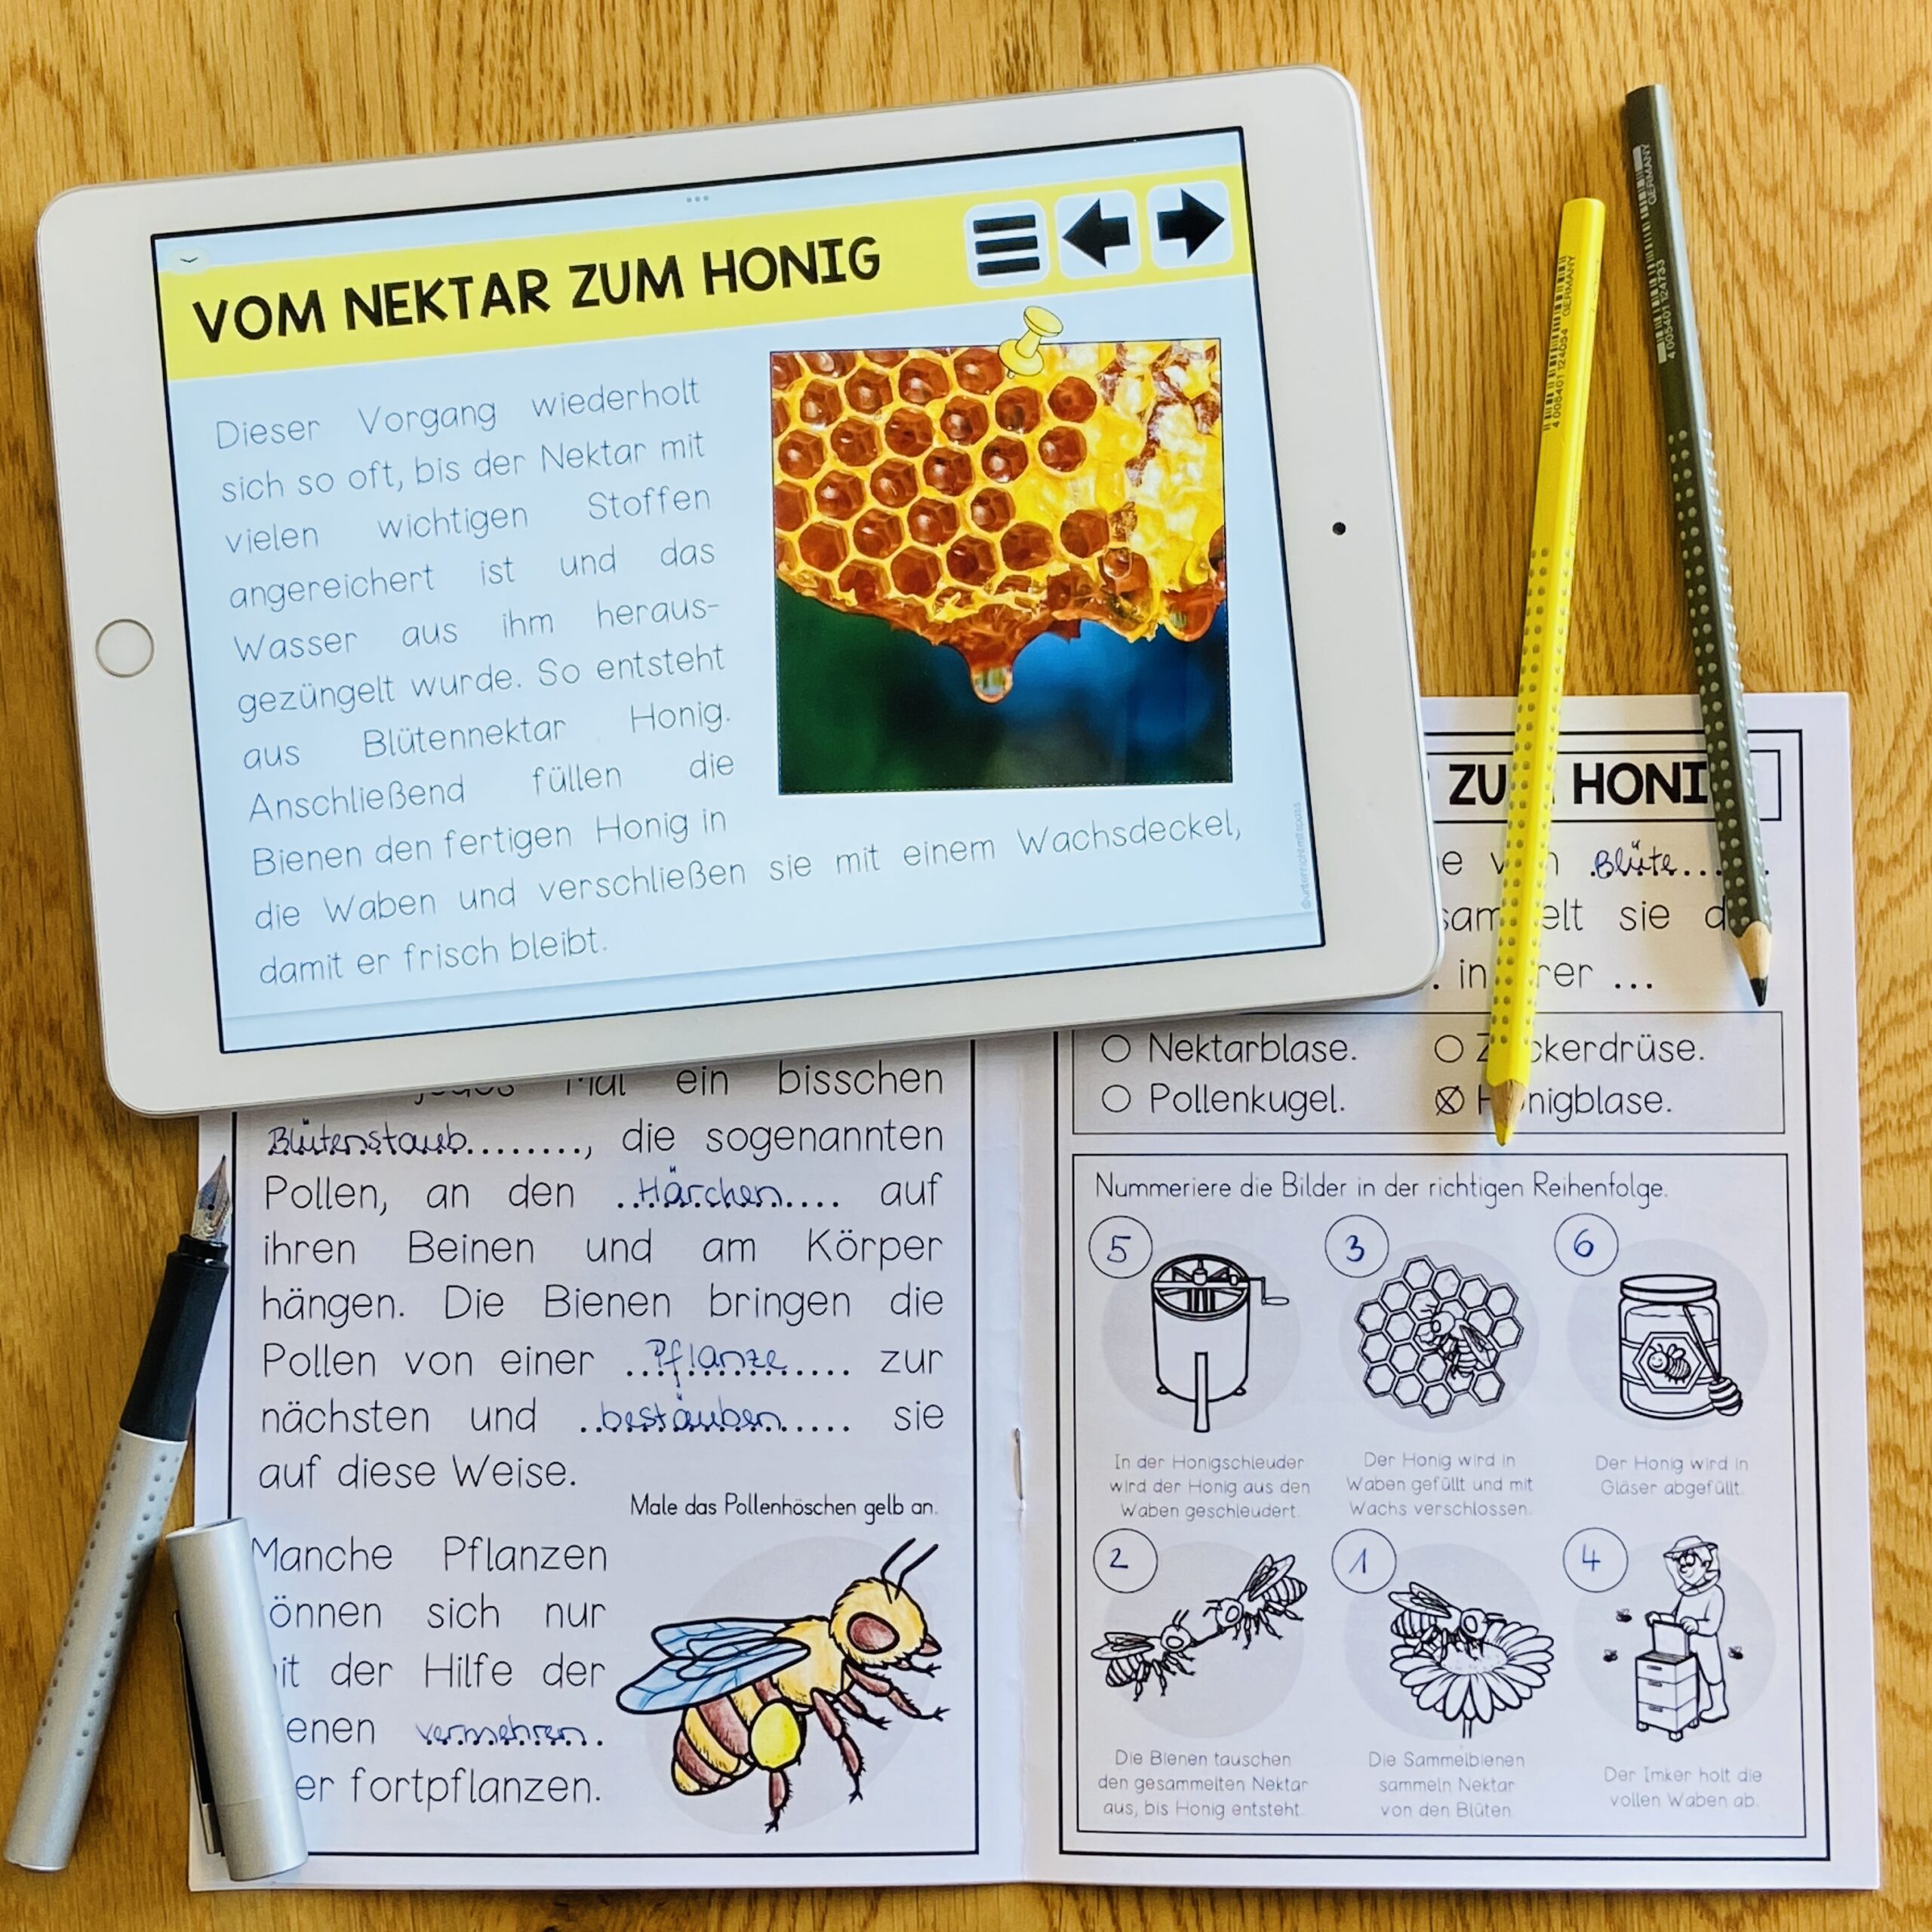 VOM NEKTAR ZUM HONIG
Dieser Vorgang wiederholt
sich so oft, bis der Nektar mit
vielen wichtigen Stoffen
angereichert ist und das
Wasser aus ihm heraus-
gezüngelt wurde. So entsteht
aus Blütennektar Honig.
Anschließend füllen die
Bienen den fertigen Honig in
die Waben und verschließen sie mit einem Wachsdeckel,
damit er frisch bleibt.
@unterrichtmitspass
4 005401 124054 GERMANY
4 005401 124733 GERMANY
ein bisschen
Blütenstaub........, die sogenannten
Pollen, an den ..Härchen.... auf
ihren Beinen und am Körper
hängen. Die Bienen bringen die
Pollen von einer ..Pflanze.... zur
nächsten und ..bestäuben.... sie
auf diese Weise.
Male das Pollenhöschen gelb an.
Manche Pflanzen
sich nur
der Hilfe der
vermehren.
fortpflanzen.
HONI
Blüte....
sie
in ...
Nektarblase.
Pollenkugel. Honigblase.
Nummeriere die Bilder in der richtigen Reihenfolge.
5 3 6
In der Honigschleuder
wird der Honig aus den
Waben geschleudert.
Der Honig wird in
Waben gefüllt und mit
Wachs verschlossen.
Der Honig wird in
Gläser abgefüllt.
2 1 4
Die Bienen tauschen
den gesammelten Nektar
aus, bis Honig entsteht.
Die Sammelbienen
sammeln Nektar
von den Blüten.
Der Imker holt die
vollen Waben ab.